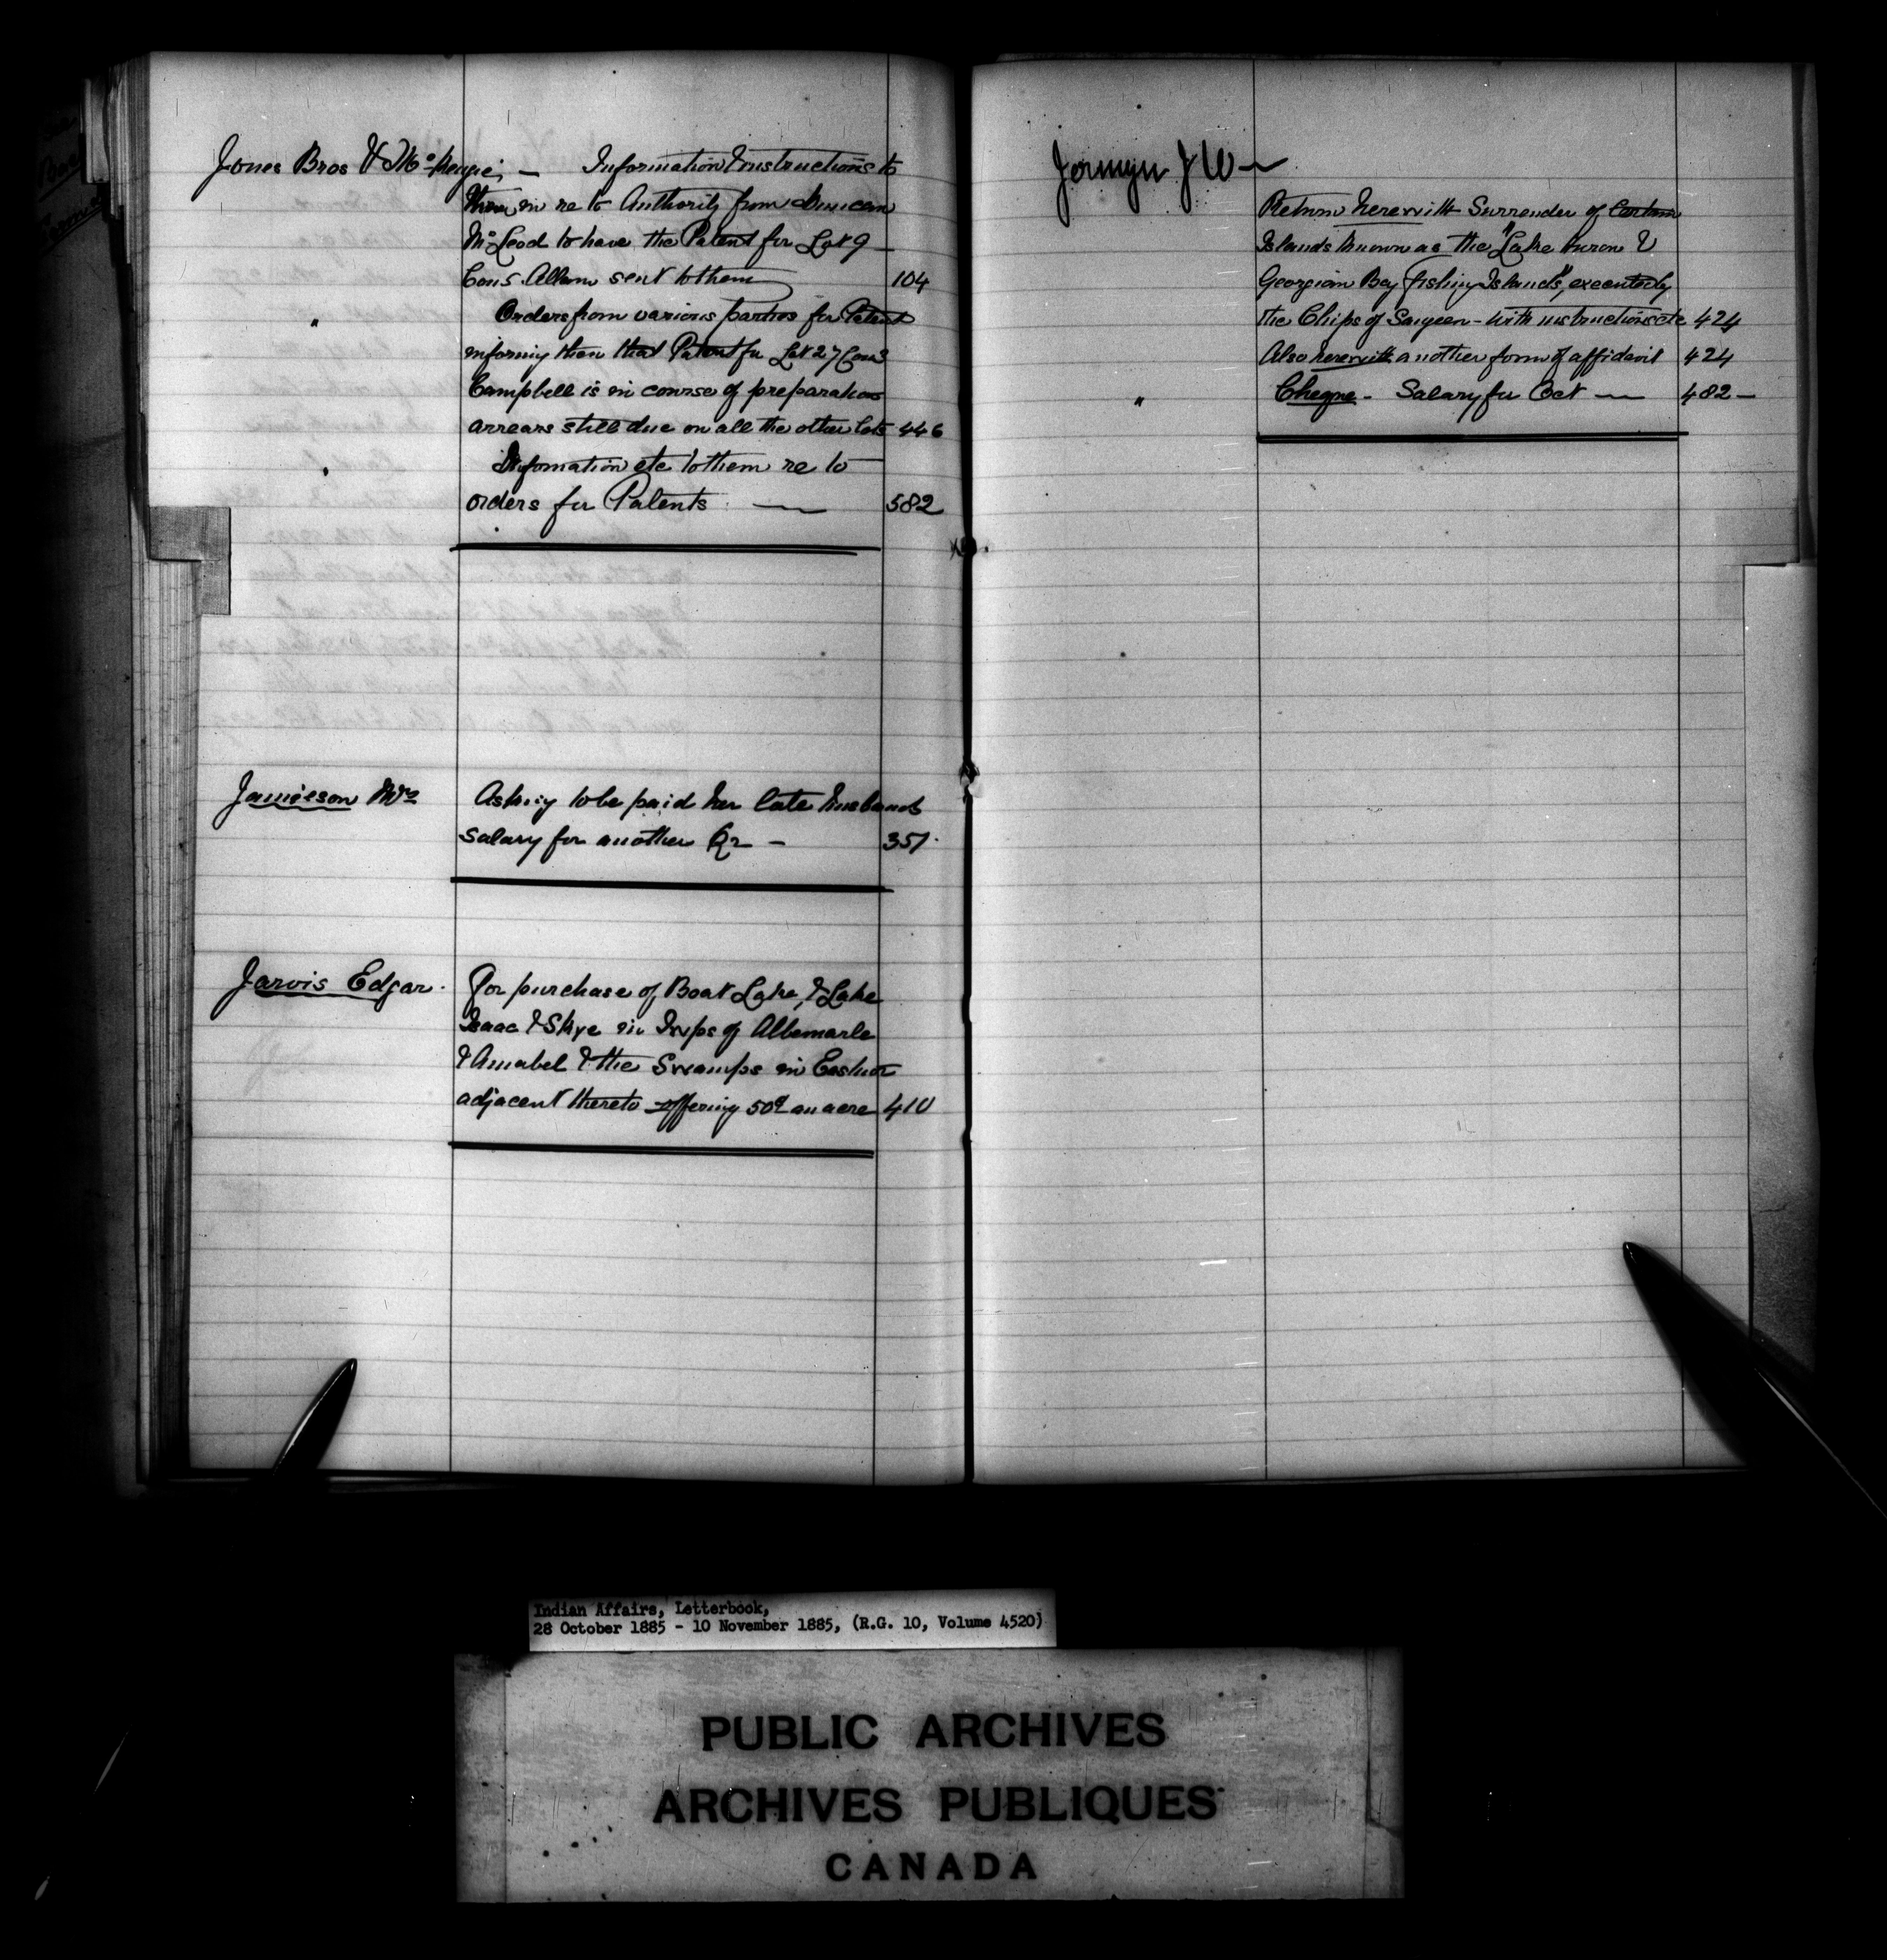 Jones Bros & McKenzie, — Information & instructions to
them in re to Authority from Duncan
McLeod to have the Patent for Lot 9
Cons. Allan sent to them 104
" Orders from various parties for Patents
informing them that Patent for Lot 27 Con 3
Campbell is in course of preparation
arrears still due on all the other lots 446
" Information etc to them re to
orders for Patents — 582
Jamieson Mrs Asking to be paid her late husbands
salary for another Qr — 351
Jarvis Edgar. For purchase of Boat Lake, & Lake
Isaac & Skye in Twps of Albemarle
& Amabel & the Swamps in Eastnor
adjacent thereto offering 50¢ an acre 410
Jermyn J W —
Return herewith Surrender of Certain
Islands known as the "Lake Huron &
Georgian Bay fishing Islands", executed by
the Chips of Saugeen - with instructions etc 424
Also herewith another form of affidavit 424
" Cheque - Salary for Oct — 482 —
Indian Affairs, Letterbook,
28 October 1885 - 10 November 1885, (R.G. 10, Volume 4520)
PUBLIC ARCHIVES
ARCHIVES PUBLIQUES
CANADA